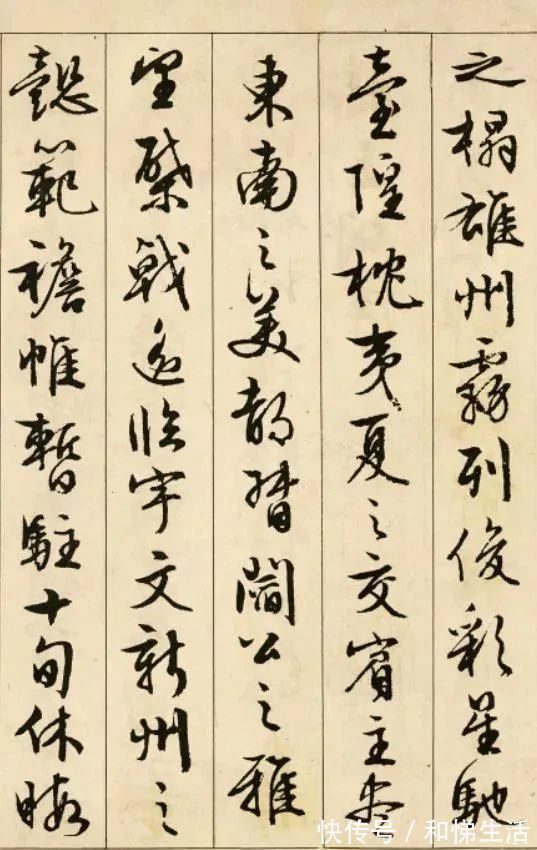 之榻雄州霧列俊彩星馳
臺隍枕夷夏之交賓主盡
東南之美都督閻公之雅
望棨戟遙臨宇文新州之
懿範襜帷暫駐十旬休暇
快传号 / 和悌生活